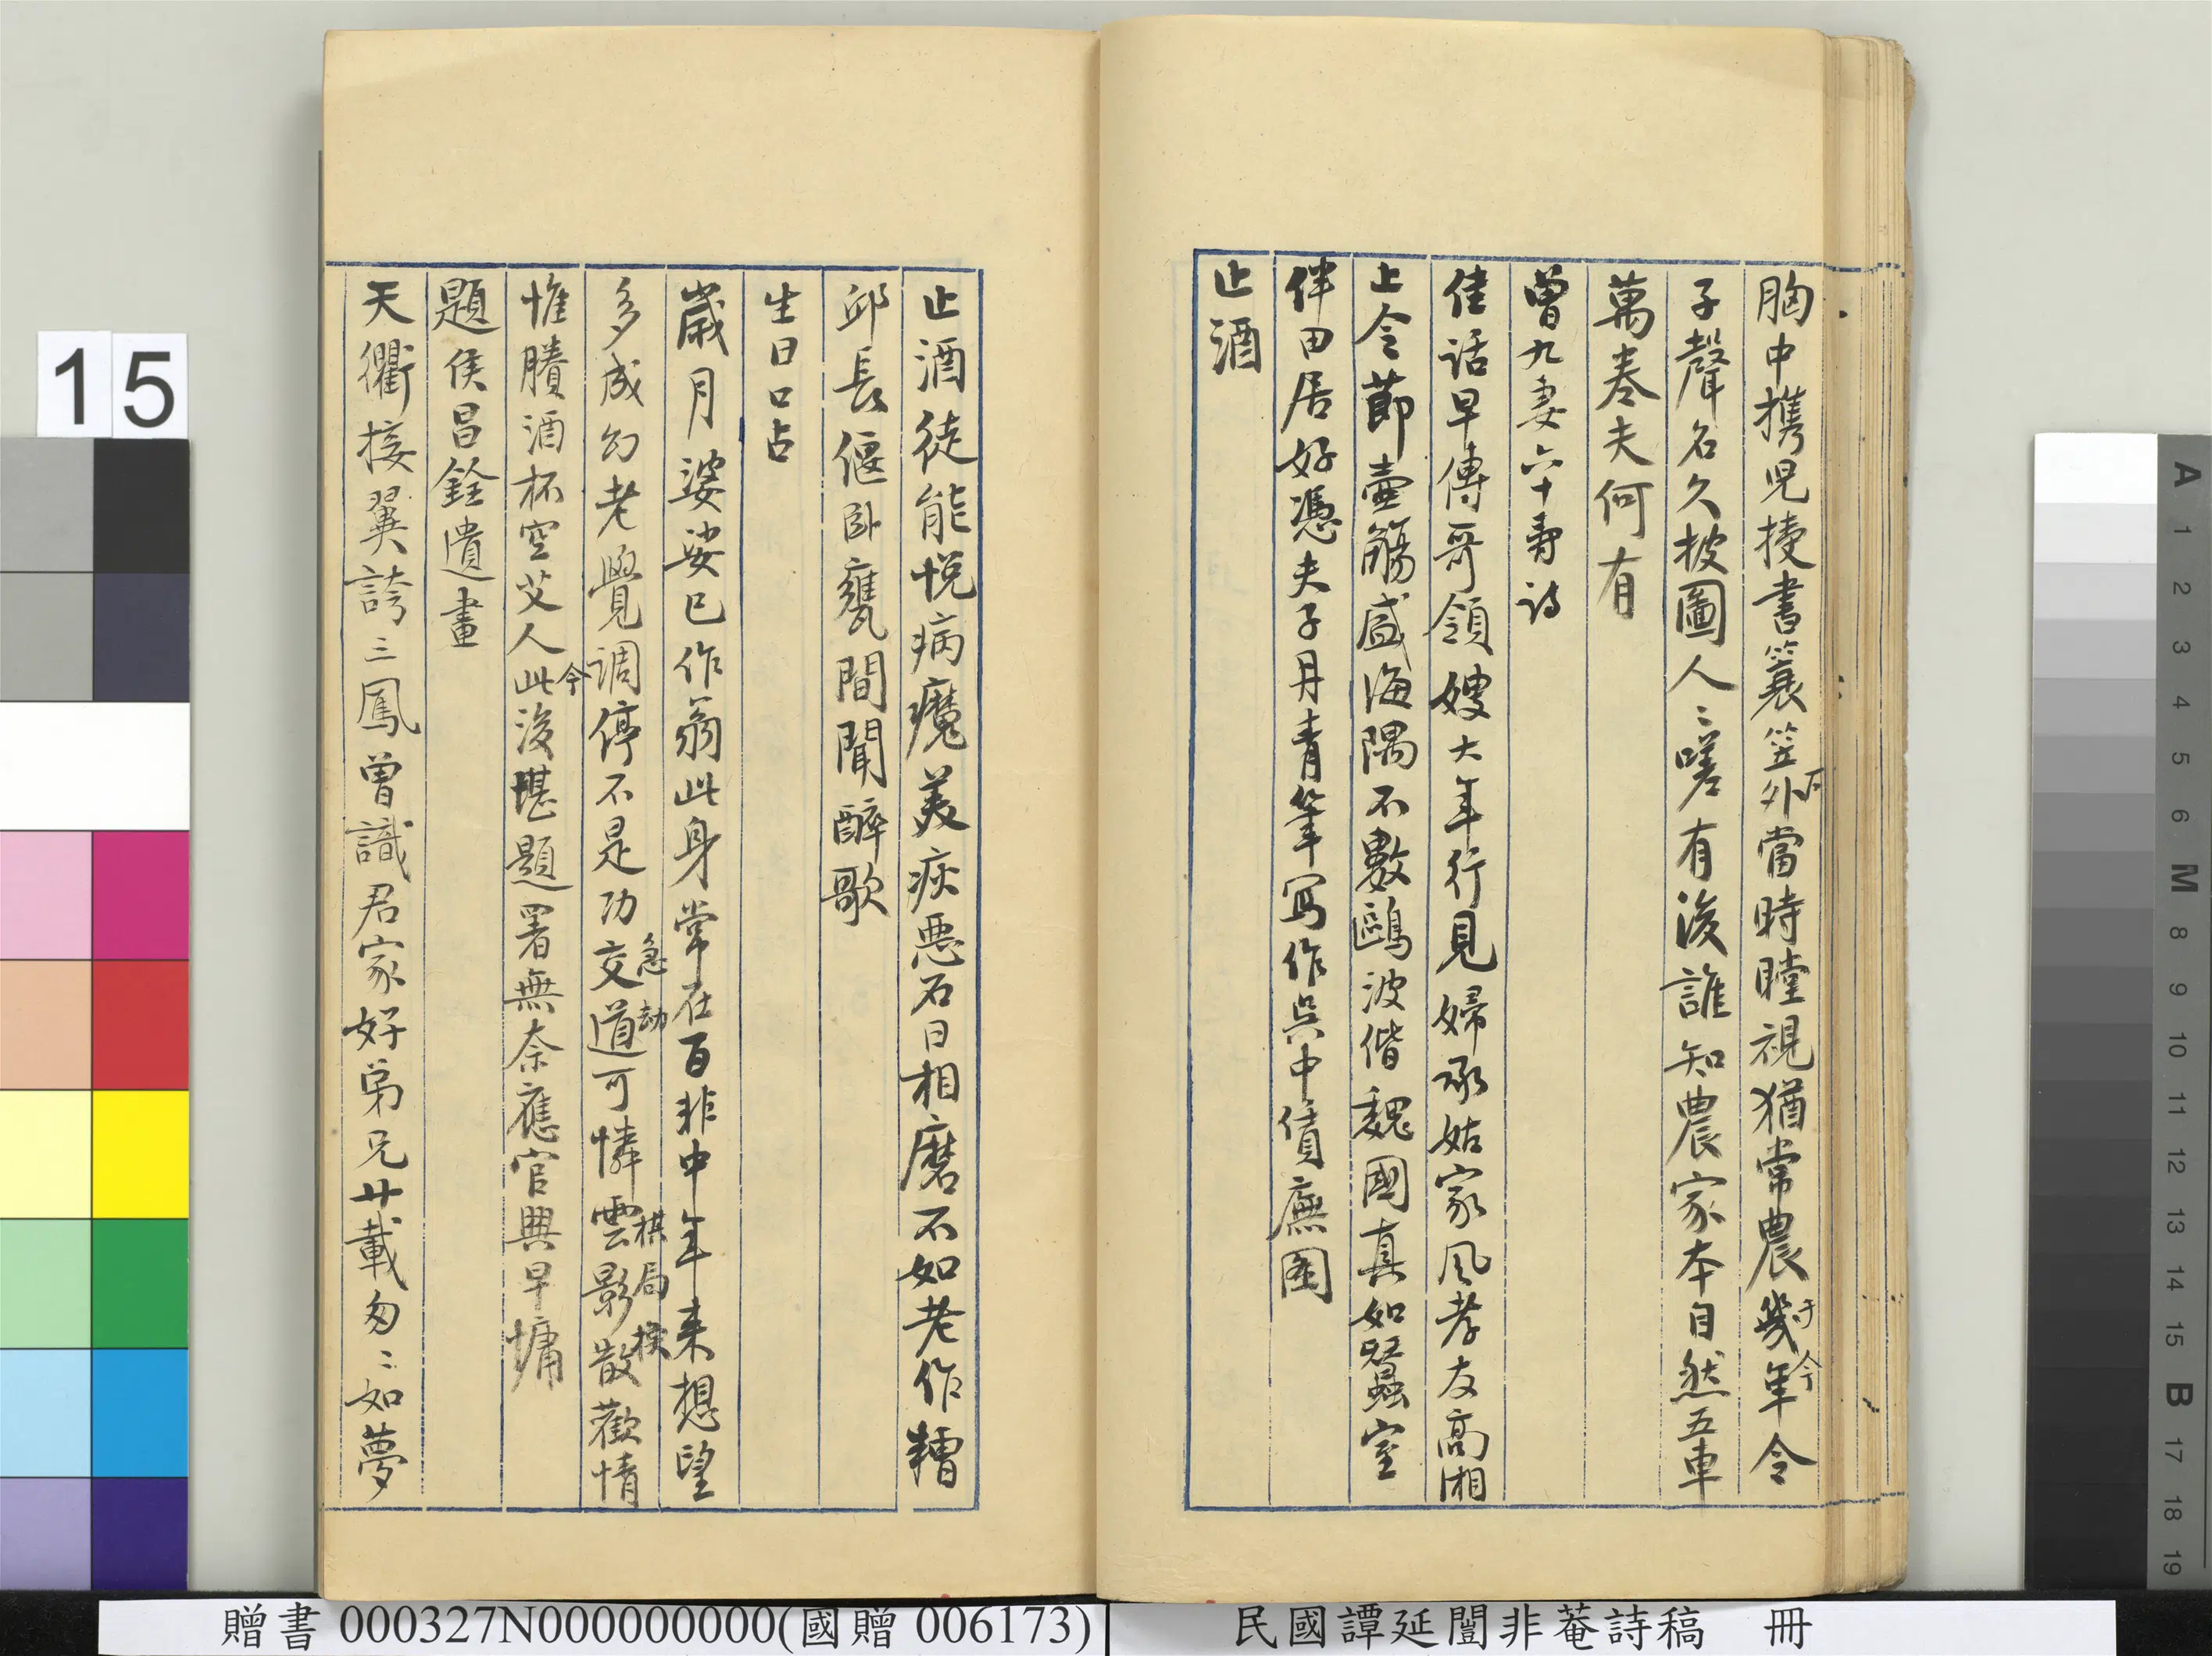 胸中携兒挾書蓑笠外當時瞠視猶常農幾年令
子聲名久披圖人〻嗟有後誰知農家本自然五車
萬卷夫何有
曾九妻六十壽詩
佳話早傳哥領嫂大年行見婦承姑家風孝友高湘
上令節壺觴盛海隅不數鷗波偕魏國真如蠶室
伴田居好憑夫子丹青筆寫作吳中賃廡圖
止酒
止酒徒能悅病魔美疢惡石日相磨不如老作糟
邱長偃臥甕間聞醉歌
生日口占
歲月婆娑已作翁此身常在百非中年來想望
多成幻老覺調停不是功交道可憐雲影散歡情
急劫
棋局
惟賸酒杯空艾人此後堪題署無奈應官興早慵
今
題侯昌銓遺畫
天衢接翼誇三鳳曾識君家好弟兄廿載匆〻如夢
15
A 1 2 3 4 5 6 M 8 9 10 11 12 13 14 15 B 17 18 19
贈書 000327N000000000(國贈 006173)
民國譚延闓非菴詩稿 冊